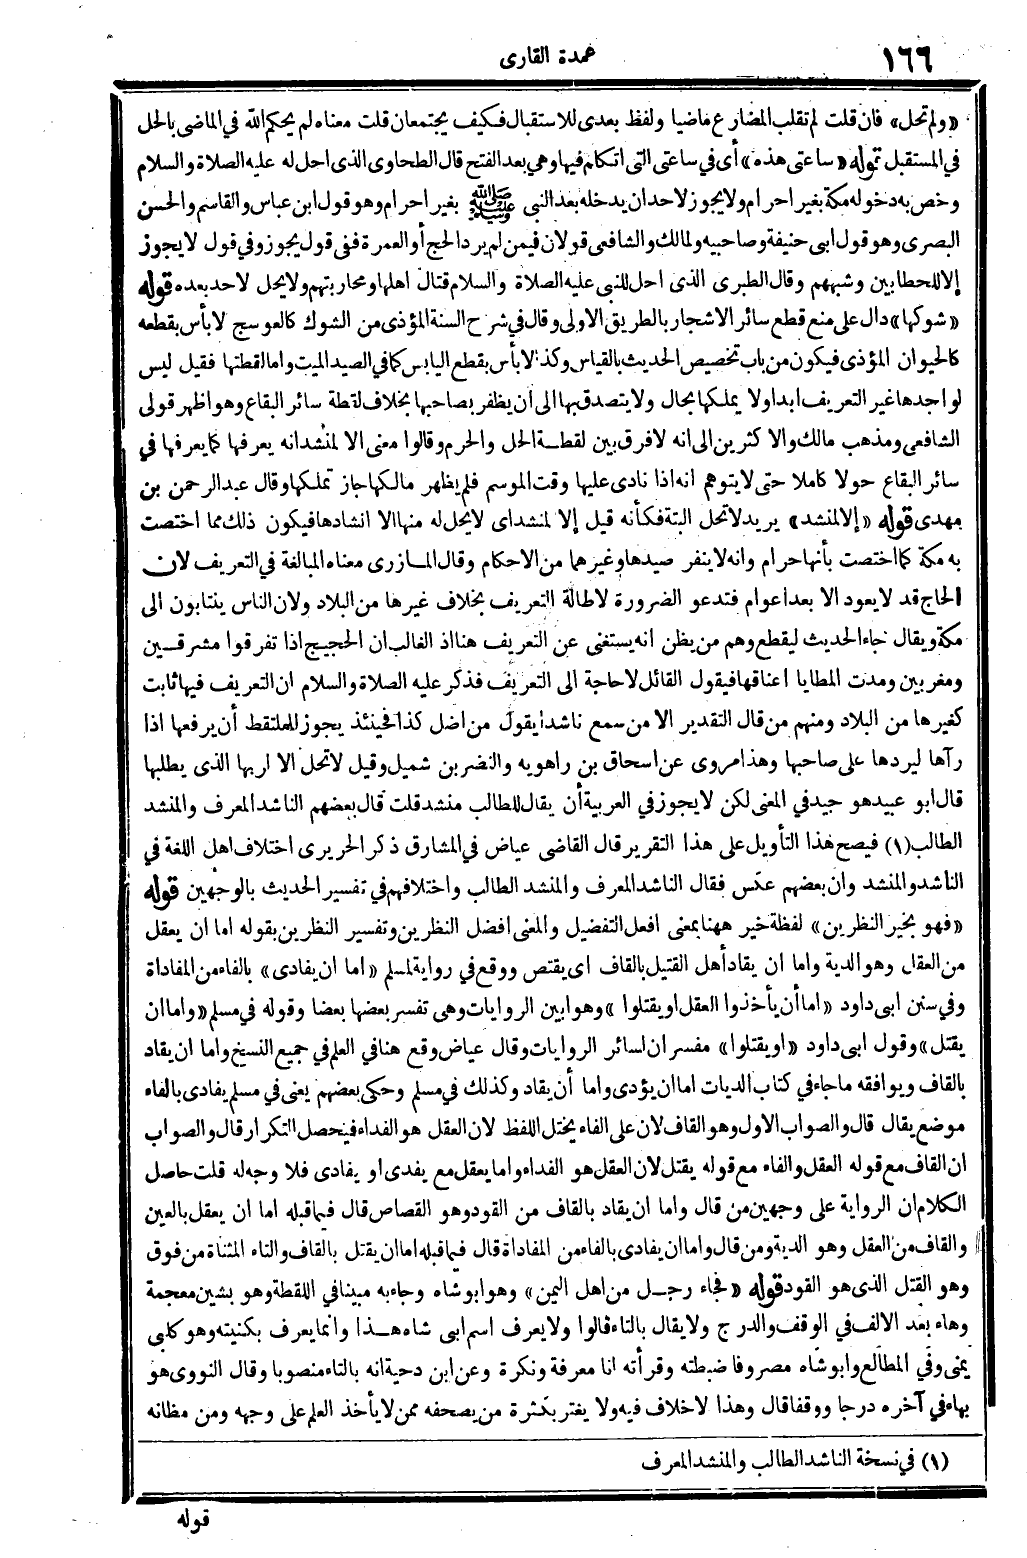 ١٦٦
عمدة القارى
«ولم تحل» فان قلت لم تقلب المضارع ماضيا ولفظ بعدى للاستقبال فكيف يجتمعان قلت معناه لم يحكم الله في الماضى بالحل
في المستقبل قوله «ساعتى هذه» أى في ساعتى التى اتكلم فيها وهي بعد الفتح قال الطحاوى الذى احل له عليه الصلاة والسلام
وخص به دخوله مكة بغير احرام ولا يجوز لاحد ان يدخله بعد النبى ﷺ بغير احرام وهو قول ابن عباس والقاسم والحسن
البصرى وهو قول ابى حنيفة وصاحبيه ولمالك والشافعى قولان فيمن لم يرد الحج أو العمرة ففى قول يجوز وفي قول لا يجوز
إلا للحطابين وشبههم وقال الطبرى الذى احل للنبى عليه الصلاة والسلام قتال اهلها ومحاربتهم ولا يحل لاحد بعده قوله
«شوكها» دال على منع قطع سائر الاشجار بالطريق الاولى وقال في شرح السنة المؤذى من الشوك كالعوسج لا بأس بقطعه
كالحيوان المؤذى فيكون من باب تخصيص الحديث بالقياس وكذا لا بأس بقطع اليابس كما في الصيد الميت واما لقطتها فقيل ليس
لواجدها غير التعريف ابدا ولا يملكها بحال ولا يتصدق بها الى أن يظفر بصاحبها بخلاف لقطة سائر البقاع وهو اظهر قولى
الشافعى ومذهب مالك والاكثرين الى انه لا فرق بين لقطة الحل والحرم وقالوا معنى الا لمنشد انه يعرفها كما يعرفها في
سائر البقاع حولا كاملا حتى لا يتوهم انه اذا نادى عليها وقت الموسم فلم يظهر مالكها جاز تملكها وقال عبد الرحمن بن
مهدى قوله «إلا لمنشد» يريد لا تحل البتة فكأنه قيل إلا لمنشد اى لا يحل له منها الا انشادها فيكون ذلك مما اختصت
به مكة كما اختصت بأنها حرام وانه لا ينفر صيدها وغيرهما من الاحكام وقال المازرى معناه المبالغة في التعريف لان
الحاج قد لا يعود الا بعد اعوام فتدعو الضرورة لاطالة التعريف بخلاف غيرها من البلاد ولان الناس ينتابون الى
مكة ويقال جاء الحديث ليقطع وهم من يظن انه يستغنى عن التعريف هنا اذ الغالب ان الحجيج اذا تفرقوا مشرقين
ومغربين ومدت المطايا اعناقها فيقول القائل لا حاجة الى التعريف فذكر عليه الصلاة والسلام ان التعريف فيها ثابت
كغيرها من البلاد ومنهم من قال التقدير الا من سمع ناشدا يقول من اضل كذا فحينئذ يجوز للملتقط أن يرفعها اذا
رآها ليردها على صاحبها وهذا مروى عن اسحاق بن راهويه والنضر بن شميل وقيل لا تحل الا لربها الذى يطلبها
قال ابو عبيد هو جيد في المعنى لكن لا يجوز في العربية أن يقال للطالب منشد قلت قال بعضهم الناشد المعرف والمنشد
الطالب (١) فيصح هذا التأويل على هذا التقرير قال القاضى عياض في المشارق ذكر الحريرى اختلاف اهل اللغة في
الناشد والمنشد وان بعضهم عكس فقال الناشد المعرف والمنشد الطالب واختلافهم في تفسير الحديث بالوجهين قوله
«فهو بخير النظرين» لفظة خير ههنا بمعنى افعل التفضيل والمعنى افضل النظرين وتفسير النظرين بقوله اما ان يعقل
من العقل وهو الدية واما ان يقاد أهل القتيل بالقاف اى يقتص ووقع في رواية لمسلم «اما ان يفادى» بالفاء من المفاداة
وفي سنن ابى داود «اما أن يأخذوا العقل او يقتلوا» وهو ابين الروايات وهى تفسر بعضها بعضا وقوله في مسلم «واما ان
يقتل» وقول ابى داود «او يقتلوا» مفسران لسائر الروايات وقال عياض وقع هنا في العلم في جميع النسخ واما ان يقاد
بالقاف ويوافقه ما جاء في كتاب الديات اما ان يؤدى واما أن يقاد وكذلك في مسلم وحكى بعضهم يعنى في مسلم يفادى بالفاء
موضع يقال قال والصواب الاول وهو القاف لان على الفاء يختل اللفظ لان العقل هو الفداء فيحصل التكرار قال والصواب
ان القاف مع قوله العقل والفاء مع قوله يقتل لان العقل هو الفداء واما يعقل مع يفدى او يفادى فلا وجه له قلت حاصل
الكلام ان الرواية على وجهين من قال واما ان يقاد بالقاف من القود وهو القصاص قال فيما قبله اما ان يعقل بالعين
والقاف من العقل وهو الدية ومن قال واما ان يفادى بالفاء من المفاداة قال فيما قبله اما ان يقتل بالقاف والتاء المثناة من فوق
وهو القتل الذى هو القود قوله «فجاء رجل من اهل اليمن» وهو ابو شاه وجاء به مبينا في اللقطة وهو بشين معجمة
وهاء بعد الالف في الوقف والدرج ولا يقال بالتاء قالوا ولا يعرف اسم ابى شاه هذا وانما يعرف بكنيته وهو كلبى
يمنى وفي المطالع وابو شاه مصروفا ضبطته وقرأته انا معرفة ونكرة وعن ابن دحية انه بالتاء منصوبا وقال النووى هو
بهاء في آخره درجا ووقفا قال وهذا لا خلاف فيه ولا يغتر بكثرة من يصحفه ممن لا يأخذ العلم على وجهه ومن مظانه
(١) في نسخة الناشد الطالب والمنشد المعرف
قوله